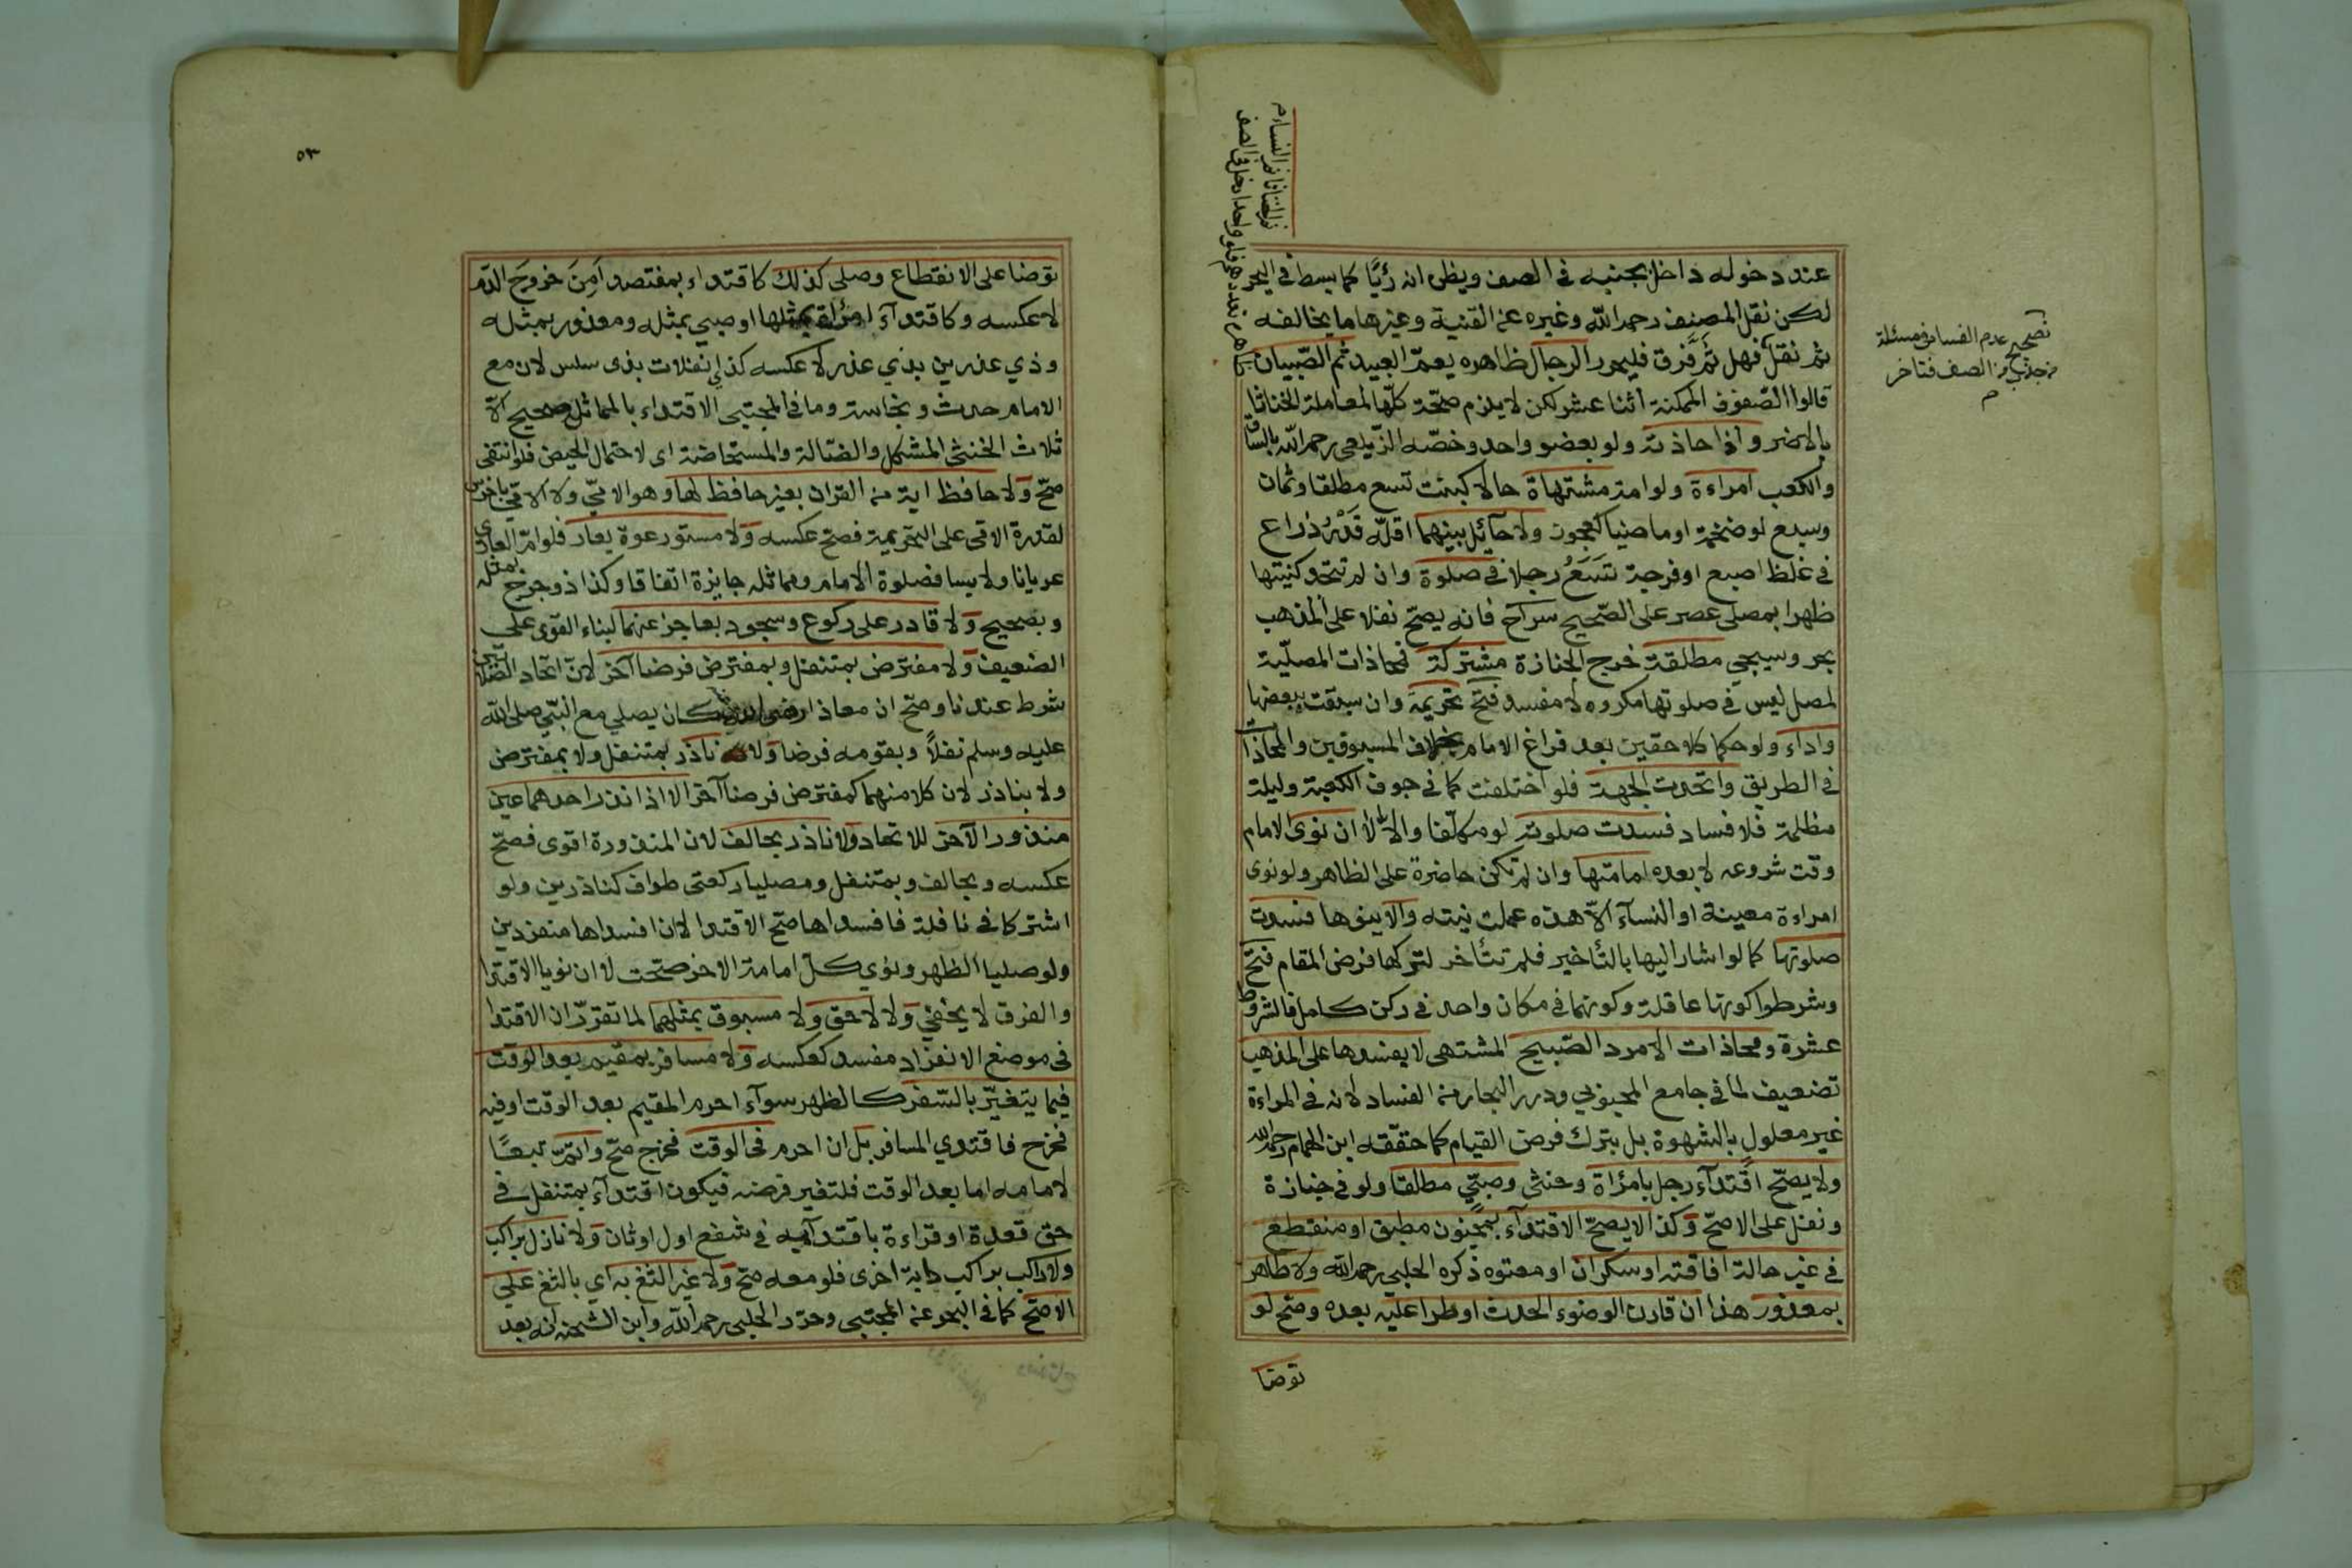 عند دخوله داخل بجنبه في الصف ويظن انه رئيا كما بسط في البحر
لكن نقل المصنف رحمه الله وغيره عن القنية وغيرها ما يخالفه
ثم نقل فهل ثم فرق فليحرر الرجال ظاهره يعم العبيد ثم الصبيان
ظاهره تعددهم فلو واحدا دخل في الصف
ثم الخناثا ثم النساء م
تصحيح عدم الفساد في مسئلة
من جذب من الصف فتاخر
م
قالوا الصفوف الممكنة اثنا عشر لكن لا يلزم صحة كلها لمعاملة الخناثا
بالاضر واذا حاذته ولو بعضو واحد وخصه الزيلعي رحمه الله بالساق
والكعب امراءة ولو امة مشتهاة حالا كبنت تسع مطلقا وثمان
وسبع لو ضخمة او ماضيا كعجوز ولا حآئل بينهما اقله قَدْرُ ذراع
في غلظ اصبع او فرجة تَسَعُ رجلا في صلوة وان لم تتحد كنيتها
ظهرا بمصلي عصر على الصحيح سراج فانه يصح نفلا على المذهب
بحر وسيجي مطلقة خرج الجنازة مشتركة فمحاذات المصلية
لمصل ليس في صلوتها مكروه لا مفسد فتح تحريمة وان سبقت ببعضها
واداء ولو حكما كلاحقين بعد فراغ الامام بخلاف المسبوقين والمحاذات
في الطريق واتحدت الجهة فلو اختلفت كما في جوف الكعبة وليلة
مظلمة فلا فساد فسدت صلوته لو مكلفا والا لا ان نوى الامام
وقت شروعه لا بعده امامتها وان لم تكن حاضرة على الظاهر ولو نوى
امراءة معينة او النسآء الا هذه عملت نيته والا ينوها فسدت
صلوتها كما لو اشار اليها بالتأخير فلم تتأخر لتركها فرض المقام فتح
وشرطوا كونها عاقلة وكونهما في مكان واحد في ركن كامل فالشروط
عشرة ومحاذات الامرد الصبيح المشتهى لا يفسدها على المذهب
تضعيف لما في جامع المحبوبي ودرر البحار من الفساد لانه في المراءة
غير معلول بالشهوة بل بترك فرض القيام كما حققه ابن الهمام رحمه الله
ولا يصح اقتدآء رجل بامرأة وخنثى وصبي مطلقا ولو في جنازة
ونفل على الاصح وكذا لا يصح الاقتدآء بمجنون مطبق او منقطع
في غير حالة افاقته او سكران او معتوه ذكره الحلبي رحمه الله ولا طاهر
بمعذور هذا ان قارن الوضوء الحدث او طرا عليه بعده وصح لو
توضا
٥٣
توضا على الانقطاع وصلى كذلك كاقتداء بمفتصد اَمِنَ خروجَ الدم
لا عكسه وكاقتدآء امرأة بمثلها او صبي بمثله ومعذور بمثله
وذي عذرين بذي عذر لا عكسه كذي انفلات بذي سلس لان مع
الامام حدث ونجاسة وما في المجتبي الاقتداء بالمماثل صحيح الا
ثلاث الخنثى المشكل والضالة والمستحاضة اى لاحتمال الحيض فلو انتفى
صح ولا حافظ اية من القران بغير حافظ لها وهو الامي ولا امي باخرس
لقدرة الامي على التحريمة فصح عكسه ولا مستور عورة بعار فلو ام العاري
عريانا ولابسا فصلوة الامام ومماثله جايزة اتفاقا وكذا ذو جرح بمثله
وبصحيح ولا قادر على ركوع وسجود بعاجز عنهما لبناء القوى على
الضعيف ولا مفترض بمتنفل وبمفترض فرضا آخر لان اتحاد الصلاتين
شرط عندنا وصح ان معاذا رضي الله عنه كان يصلي مع النبي صلى الله
عليه وسلم نفلاً وبقومه فرضا ولا ناذر بمتنفل ولا بمفترض
ولا بناذر لان كلا منهما كمفترض فرضا آخر الا اذا نذر احدهما عين
منذور الآخر للاتحاد ولا ناذر بحالف لان المنذورة اقوى فصح
عكسه وبحالف وبمتنفل ومصليا ركعتى طواف كناذرين ولو
اشتركا في نافلة فافسداها صح الاقتدا لا ان افسداها منفردين
ولو صليا الظهر ونوى كل امامة الاخر صحت لا ان نويا الاقتدا
والفرق لا يخفي ولا لاحق ولا مسبوق بمثلهما لما تقرر ان الاقتدا
في موضع الانفراد مفسد كعكسه ولا مسافر بمقيم بعد الوقت
فيما يتغير بالسفر كالظهر سوآء احرم المقيم بعد الوقت او فيه
فخرج فاقتدي المسافر بل ان احرم في الوقت فخرج صح واتم تبعًا
لامامه اما بعد الوقت فلتغير فرضه فيكون اقتدآء بمتنفل في
حق قعدة او قراءة باقتدآئه في شفع اول او ثان ولا نازل براكب
ولا راكب براكب دابة اخرى فلو معه صح ولا غير الثغ به اي بالثغ علي
الاصح كما في البحر عن المجتبي وحرر الحلبي رحمه الله وابن الشحنه انه بعد